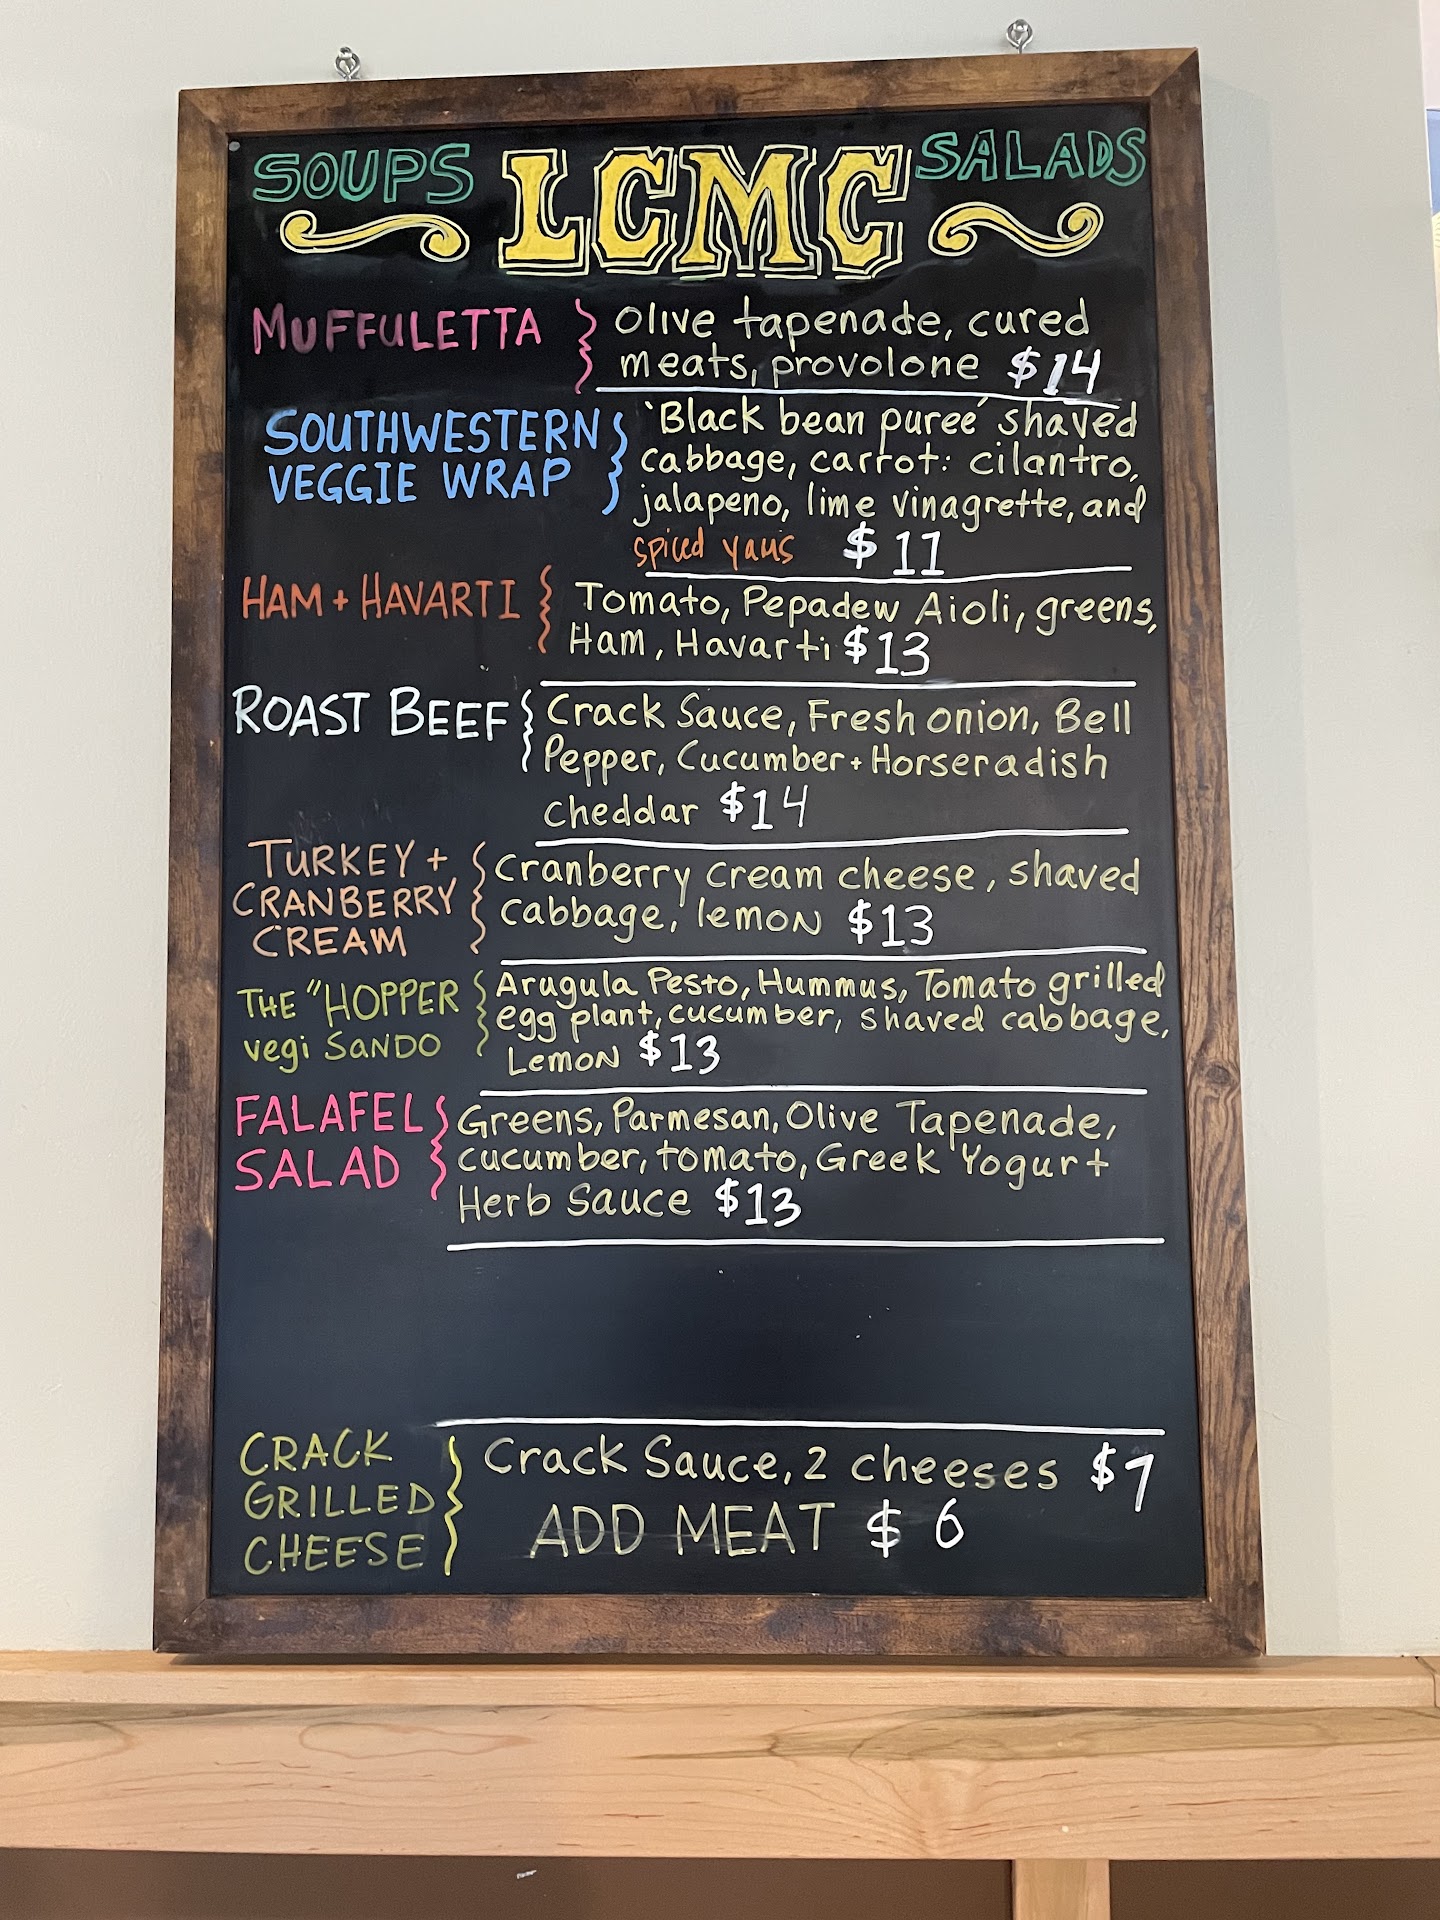 SOUPS LCMC SALADS
MUFFULETTA
Olive tapenade, cured
meats, provolone $14
SOUTHWESTERN
VEGGIE WRAP
'Black bean pureé' shaved
cabbage, carrot: cilantro,
jalapeno, lime vinagrette, and
spiced yaus $11
HAM + HAVARTI
Tomato, Pepadew Aioli, greens,
Ham, Havarti $13
ROAST BEEF
Crack Sauce, Fresh onion, Bell
Pepper, Cucumber + Horseradish
cheddar $14
TURKEY +
CRANBERRY
CREAM
Cranberry cream cheese, shaved
cabbage, lemon $13
THE "HOPPER
vegi SANDO
Arugula Pesto, Hummus, Tomato grilled
egg plant, cucumber, shaved cabbage,
Lemon $13
FALAFEL
SALAD
Greens, Parmesan, Olive Tapenade,
cucumber, tomato, Greek Yogurt
Herb Sauce $13
CRACK
GRILLED
CHEESE
Crack Sauce, 2 cheeses $7
ADD MEAT $6